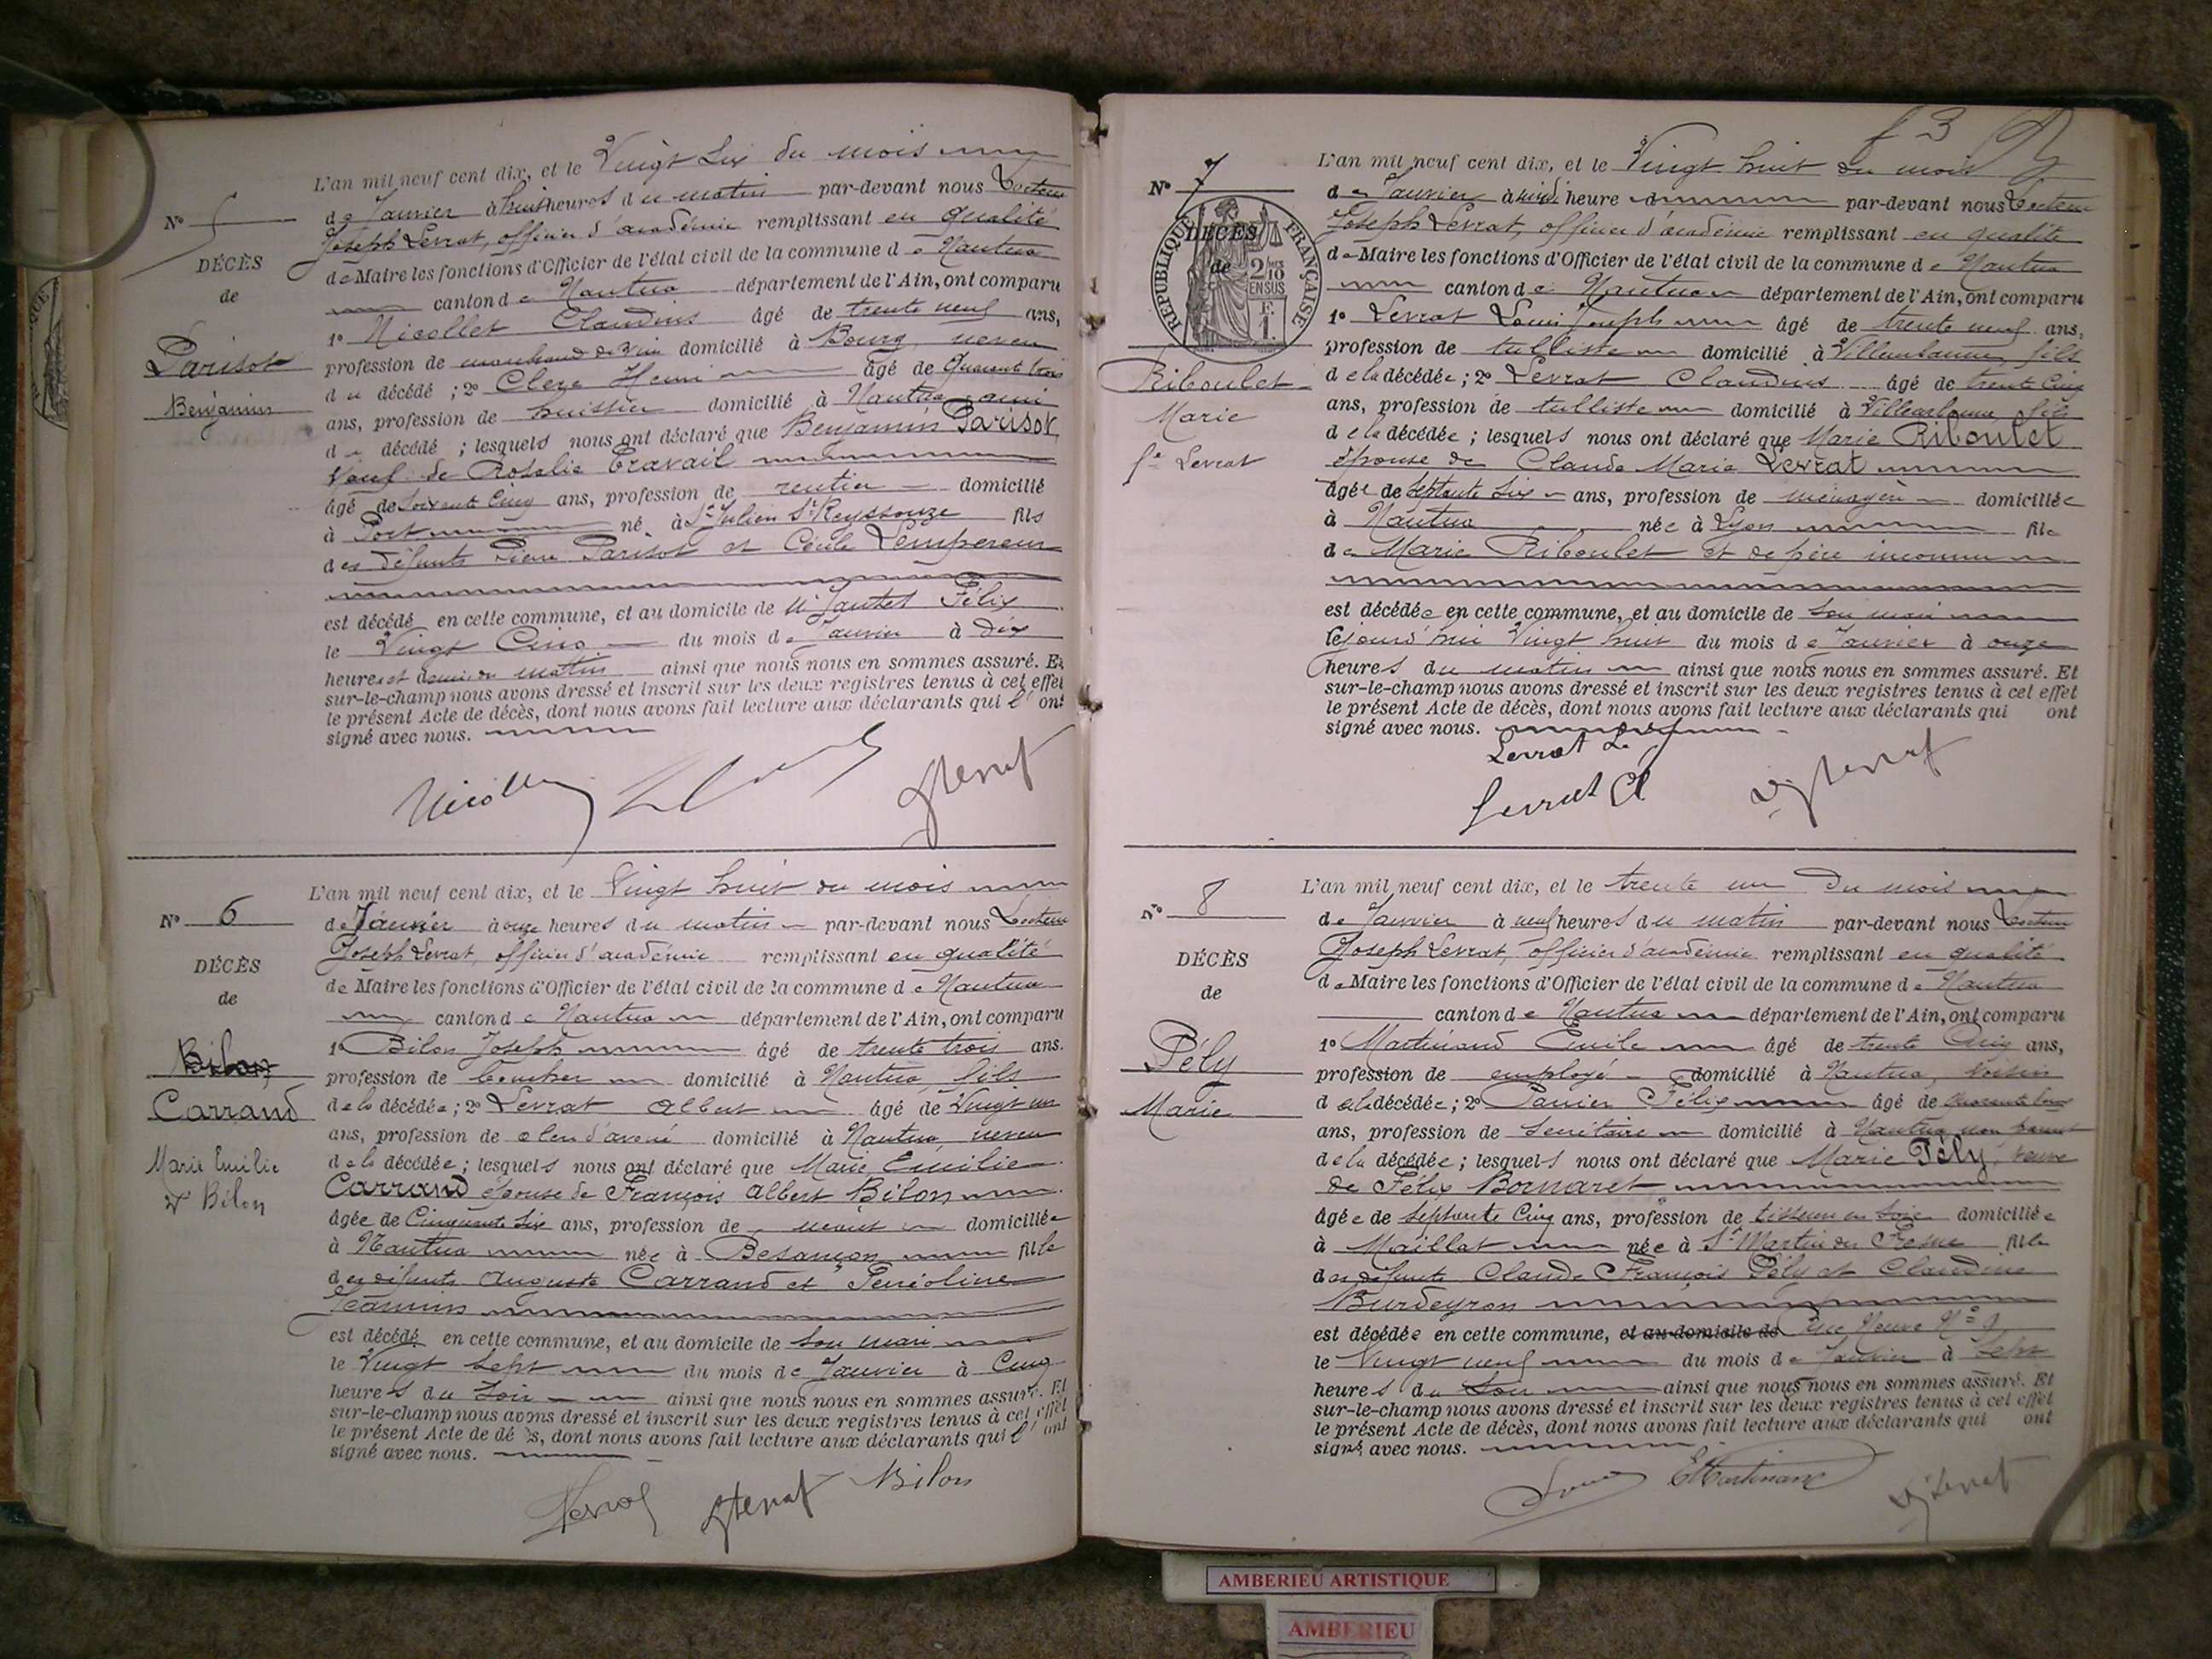 L'an mil neuf cent dix, et le Vingt Six du mois
N° 5
de Janvier à huit heures du matin par-devant nous Docteur
Joseph Levrat, officier d'académie remplissant en qualité
DÉCÈS
de Maire les fonctions d'Officier de l'état civil de la commune de Nantua
de
canton de Nantua département de l'Ain, ont comparu
1° Nicollet Claudius âgé de trente neuf ans,
Parisot
profession de marchand de vin domicilié à Bourg, neveu
du décédé ; 2° Clerc Henri âgé de Quarante trois
Benjamin
ans, profession de huissier domicilié à Nantua ami
du décédé ; lesquels nous ont déclaré que Benjamin Parisot
Veuf de Rosalie Cravail
âgé de Soixante Cinq ans, profession de rentier domicilié
à Port né à St Julien St Reyssouze fils
des défunts Pierre Parisot et Cécile Lempereur
est décédé en cette commune, et au domicile de Mr Jantet Félix
le Vingt Cinq du mois de Janvier à dix
heures et demie du matin ainsi que nous nous en sommes assuré. Et
sur-le-champ nous avons dressé et inscrit sur les deux registres tenus à cet effet
le présent Acte de décès, dont nous avons fait lecture aux déclarants qui l' ont
signé avec nous.
L'an mil neuf cent dix, et le Vingt huit du mois
N° 6
de Janvier à onze heures du matin par-devant nous Docteur
Joseph Levrat, officier d'académie remplissant en qualité
DÉCÈS
de Maire les fonctions d'Officier de l'état civil de la commune de Nantua
de
canton de Nantua département de l'Ain, ont comparu
Bilon
1° Bilon Joseph âgé de trente trois ans.
profession de boucher domicilié à Nantua, fils
Carrand
de la décédée ; 2° Levrat Albert âgé de Vingt un
ans, profession de clerc d'avoué domicilié à Nantua, neveu
Marie Emilie
de la décédée ; lesquels nous ont déclaré que Marie Emilie
fe Bilon
Carrand épouse de François Albert Bilon
âgée de Cinquante Six ans, profession de néant domiciliée
à Nantua née à Besançon fille
des défunts Auguste Carrand et
est décédé en cette commune, et au domicile de Son mari
le Vingt Sept du mois de Janvier à Cinq
heures du Soir ainsi que nous nous en sommes assuré. Et
sur-le-champ nous avons dressé et inscrit sur les deux registres tenus à cet effet
le présent Acte de décès, dont nous avons fait lecture aux déclarants qui l' ont
signé avec nous.
Bilon
f 3
L'an mil neuf cent dix, et le Vingt huit du mois
N° 7
de Janvier à midi heure d par-devant nous Docteur
Joseph Levrat, officier d'académie remplissant en qualité
RÉPUBLIQUE FRANÇAISE
DÉCÈS
de
2/10 EN SUS
F. 1.
de Maire les fonctions d'Officier de l'état civil de la commune de Nantua
canton de Nantua département de l'Ain, ont comparu
1° Levrat Louis Joseph âgé de trente neuf ans,
profession de tulliste domicilié à Villeurbanne, fils
Riboulet
de la décédée ; 2° Levrat Claudius âgé de trente Cinq
Marie
ans, profession de tulliste domicilié à Villeurbanne fils
de la décédée ; lesquels nous ont déclaré que Marie Riboulet
fe Levrat
épouse de Claude Marie Levrat
âgée de Septante Six ans, profession de ménagère domiciliée
à Nantua née à Lyon fille
de Marie Riboulet et de père inconnu
est décédée en cette commune, et au domicile de Son mari
cejourd'hui Vingt huit du mois de Janvier à onze
heures du matin ainsi que nous nous en sommes assuré. Et
sur-le-champ nous avons dressé et inscrit sur les deux registres tenus à cet effet
le présent Acte de décès, dont nous avons fait lecture aux déclarants qui ont
signé avec nous.
Levrat L.
Levrat Cl
L'an mil neuf cent dix, et le trente un du mois
N° 8
de Janvier à neuf heures du matin par-devant nous Docteur
Joseph Levrat, officier d'académie remplissant en qualité
DÉCÈS
de Maire les fonctions d'Officier de l'état civil de la commune de Nantua
de
canton de Nantua département de l'Ain, ont comparu
1° Martinand Emile âgé de trente Cinq ans,
Pély
profession de employé domicilié à Nantua, voisin
Marie
de la décédée ; 2° Panier Félix âgé de
ans, profession de Secrétaire domicilié à Nantua non parent
de la décédée ; lesquels nous ont déclaré que Marie Pély, veuve
de Félix Bornaret
âgée de Septante Cinq ans, profession de tisseuse en Soie domiciliée
à Maillat née à St Martin du Fresne fille
des défunts Claude François Pély et Claudine
Burdeyron
est décédée en cette commune, et au domicile de Rue Neuve N° 9
le Vingt neuf du mois de Janvier à Sept
heures du Soir ainsi que nous nous en sommes assuré. Et
sur-le-champ nous avons dressé et inscrit sur les deux registres tenus à cet effet
le présent Acte de décès, dont nous avons fait lecture aux déclarants qui ont
signé avec nous.
EMartinand
AMBERIEU ARTISTIQUE
AMBERIEU